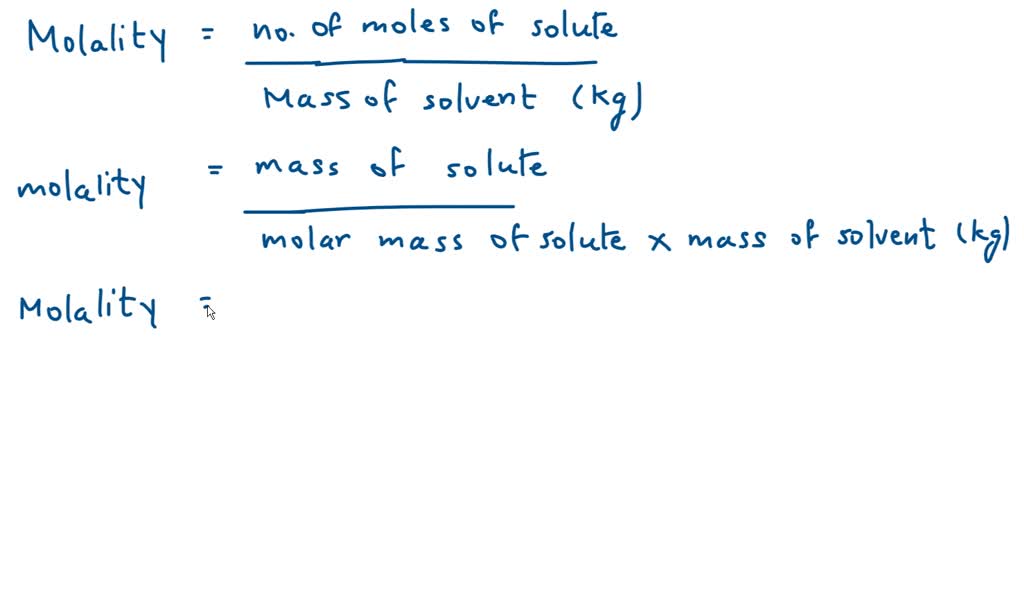 Molality = no. of moles of solute
Mass of solvent (kg)
molality = mass of solute
molar mass of solute x mass of solvent (kg)
Molality =